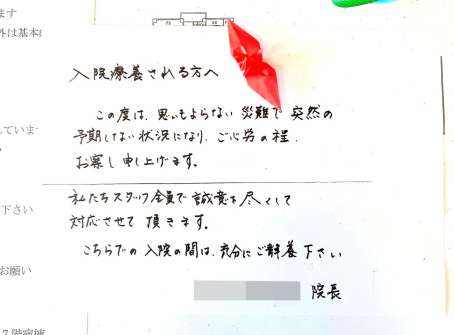 ます
外は基本
入院療養される方へ
この度は、思いもよらない災難で突然の
予期しない状況になり、ご心労の程、
お察し申し上げます。
ていま
私たちスタッフ全員で誠意を尽くして
下さい
対応させて頂きます。
こちらでの入院の間は、充分にご静養下さい
お願い
院長
7階病棟